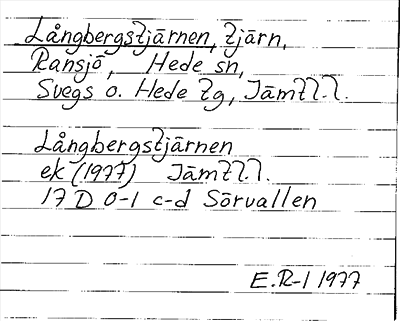 Långbergstjärnen, tjärn,
Ransjö, Hede sn,
Svegs o. Hede tg, Jämtl.l.
Långbergstjärnen
ek (1977) Jämtl.l.
17 D 0-1 c-d Sörvallen
E.R-l 1977